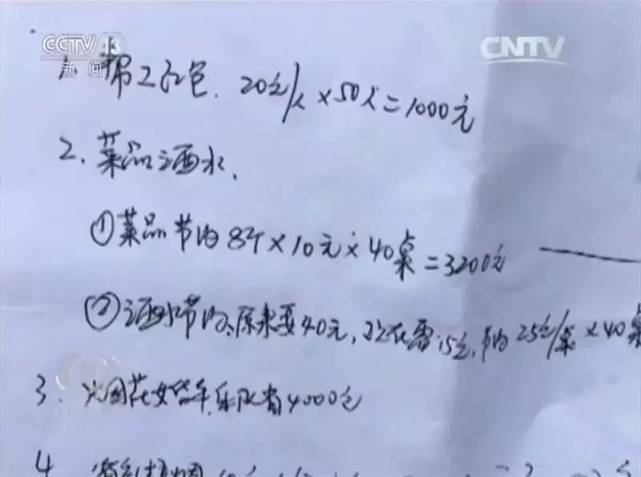 CCTV 13
新闻
CNTV
1、帮工红包：20元/人×50人=1000元
2、菜品酒水、
①菜品节约8个×10元×40桌=3200元
②酒水节约、原来要40元，现在需15元，节约25元/桌×40桌
3、乐队省4000元
4